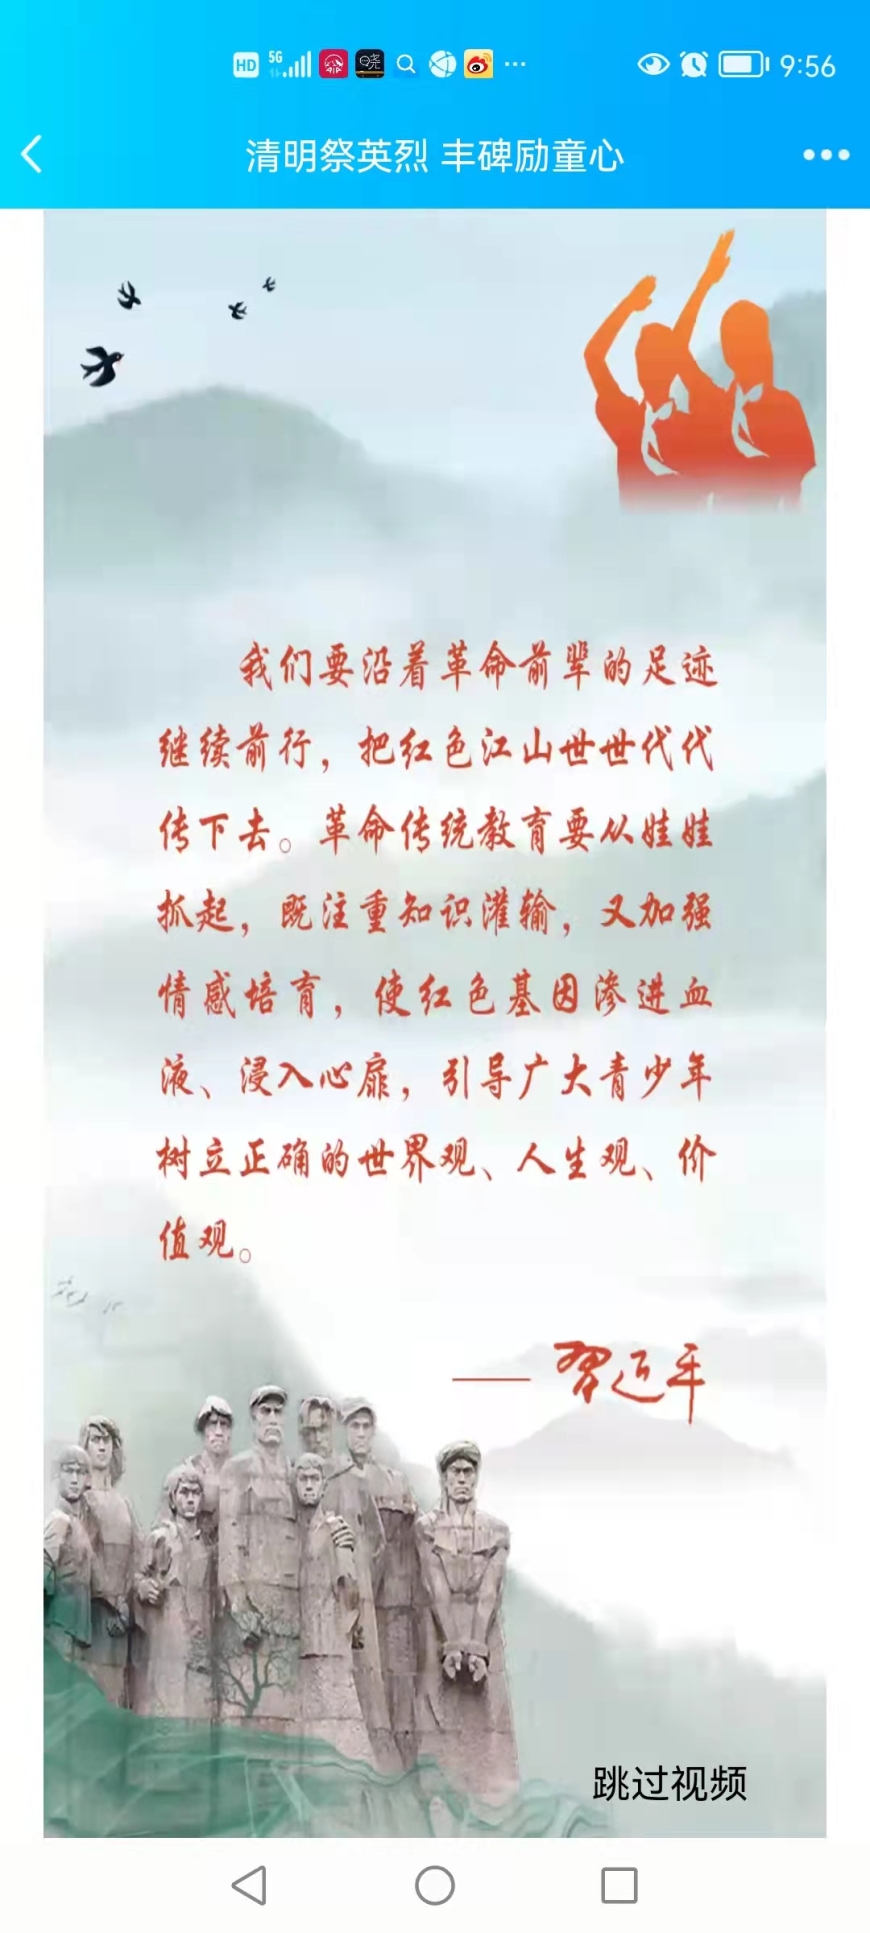 HD 5G 9:56
清明祭英烈 丰碑励童心
我们要沿着革命前辈的足迹
继续前行，把红色江山世世代代
传下去。革命传统教育要从娃娃
抓起，既注重知识灌输，又加强
情感培育，使红色基因渗进血
液、浸入心扉，引导广大青少年
树立正确的世界观、人生观、价
值观。
—— 习近平
跳过视频